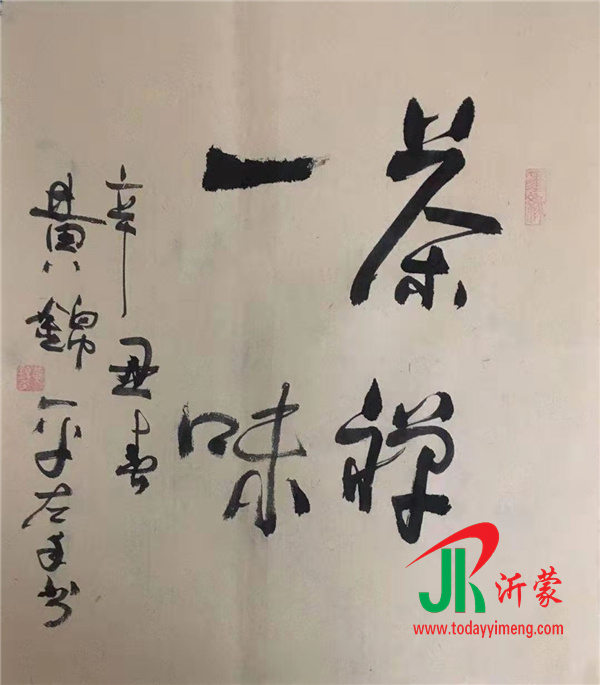 茶禅
一味
辛丑春
黄锦平左手书
JR沂蒙
www.todayyimeng.com